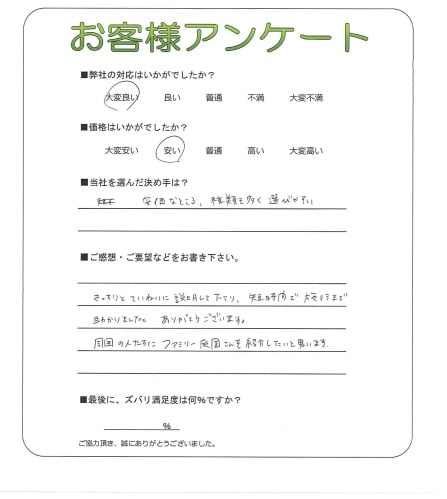 お客様アンケート
■弊社の対応はいかがでしたか?
大変良い 良い 普通 不満 大変不満
■価格はいかがでしたか?
大変安い 安い 普通 高い 大変高い
■当社を選んだ決め手は?
安価なところ、種類も多く選びがい
■ご感想・ご要望などをお書き下さい。
きっちりとていねいに説明して下さり、短時間で
助かりました。ありがとうございます。
周囲の人たちにファミリー庭園さんを紹介したいと思います
■最後に、ズバリ満足度は何%ですか?
%
ご協力頂き、誠にありがとうございました。